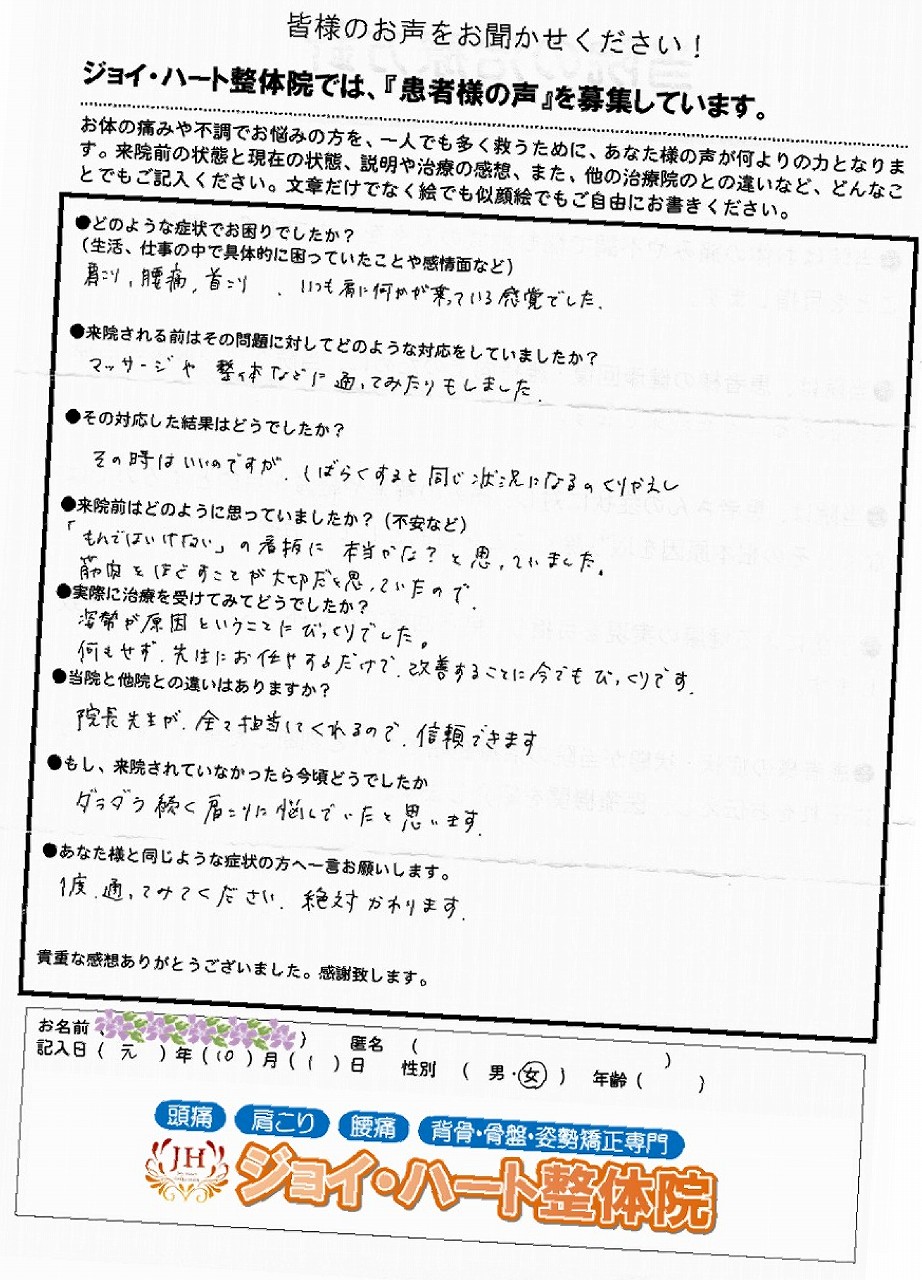 皆様のお声をお聞かせください！
ジョイ・ハート整体院では、『患者様の声』を募集しています。
お体の痛みや不調でお悩みの方を、一人でも多く救うために、あなた様の声が何よりの力となりま
す。来院前の状態と現在の状態、説明や治療の感想、また、他の治療院のとの違いなど、どんなこ
とでもご記入ください。文章だけでなく絵でも似顔絵でもご自由にお書きください。
●どのような症状でお困りでしたか？
（生活、仕事の中で具体的に困っていたことや感情面など）
肩こり，腰痛，首こり　．いつも肩に何かが乗っている感覚でした．
●来院される前はその問題に対してどのような対応をしていましたか？
マッサージや　整体などに通ってみたりもしました．
●その対応した結果はどうでしたか？
その時はいいのですが．しばらくすると同じ状況になるのくりかえし
●来院前はどのように思っていましたか？（不安など）
「もんではいけない」の看板に　本当かな？と思っていました。
筋肉をほぐすことが大切だと思っていたので．
●実際に治療を受けてみてどうでしたか？
姿勢が原因ということにびっくりでした。
何もせず．先生にお任せするだけで．改善することに今でもびっくりです．
●当院と他院との違いはありますか？
院長先生が．全て担当してくれるので．信頼できます
●もし、来院されていなかったら今頃どうでしたか
ダラダラ続く肩こりに悩んでいたと思います．
●あなた様と同じような症状の方へ一言お願いします。
1度．通ってみてください．絶対かわります．
貴重な感想ありがとうございました。感謝致します。
お名前（　）　匿名（　）
記入日（元）年（10）月（1）日　性別（男・女）　年齢（　）
頭痛　肩こり　腰痛　背骨・骨盤・姿勢矯正専門
JH ジョイ・ハート整体院